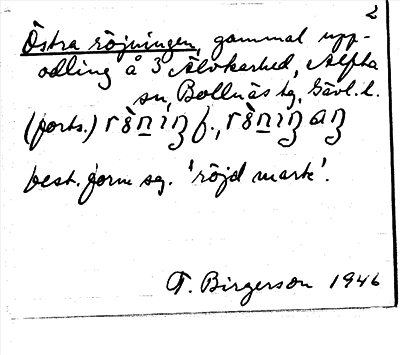 2
Östra röjningen, gammal upp-
odling å 3 Älvkarhed, Alfta
sn, Bollnäs tg, Gävl. l.
(forts.) f.,
best. form sg. 'röjd mark'.
T. Birgerson 1946